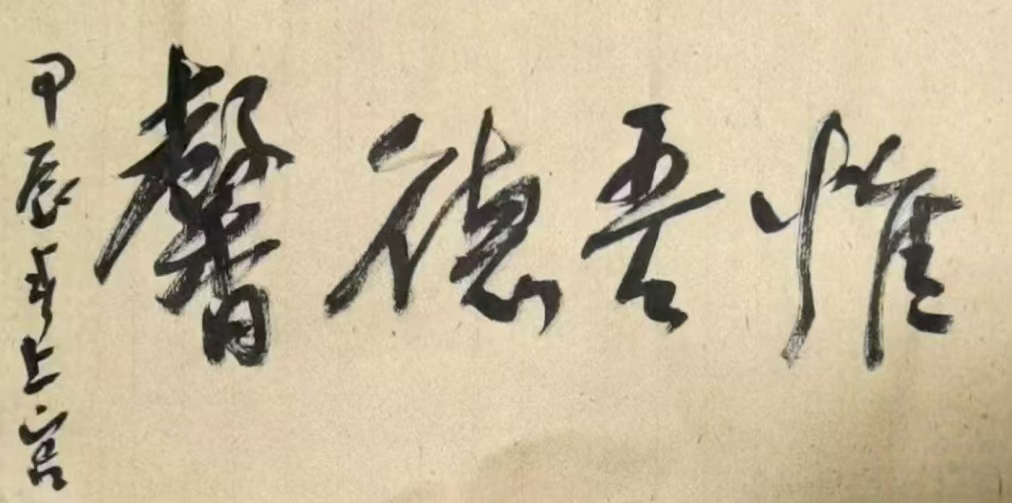 惟吾德馨
甲辰年上宫